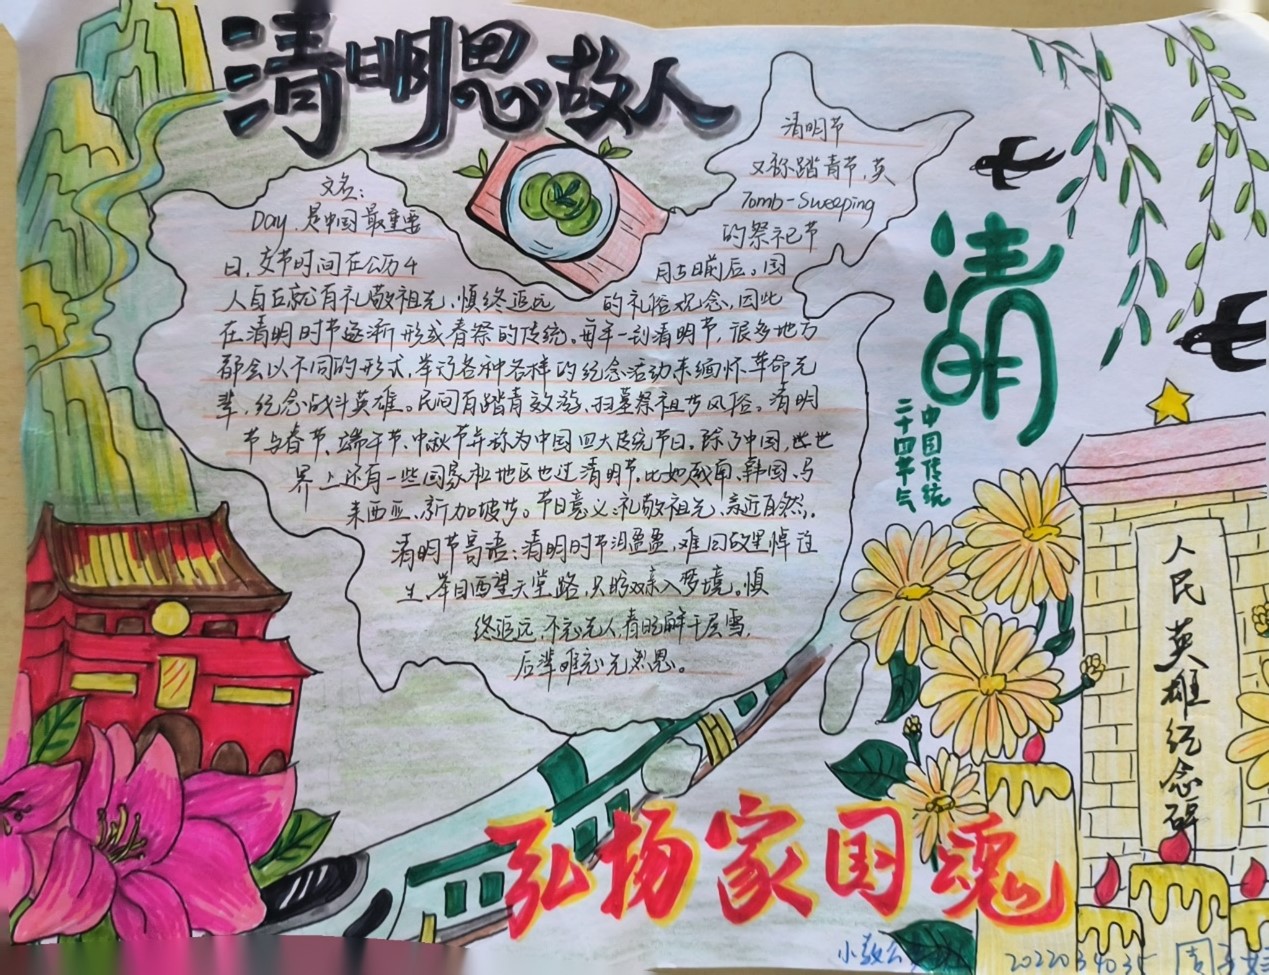 清明思故人
清明节
又称踏青节,英
文名:
Tomb-Sweeping
Day,是中国最重要
的祭祀节
日,交节时间在公历4
月5日前后。国
人自古就有礼敬祖先、慎终追远
的礼俗观念,因此
在清明时节逐渐形成春祭的传统。每年一到清明节,很多地方
都会以不同的形式,举行各种各样的纪念活动来缅怀革命先
辈,纪念战斗英雄。民间有踏青郊游、扫墓祭祖等风俗。清明
节与春节、端午节、中秋节并称为中国四大传统节日。除了中国,世
界上还有一些国家和地区也过清明节,比如越南、韩国、马
来西亚、新加坡等。节日意义:礼敬祖先、亲近自然。
清明节寄语:清明时节泪盈盈,难回故里悼
生,举目西望天堂路,只盼双亲入梦境。慎
终追远,不忘先人,春晖解千层雪,
后辈唯念先恩。
清明
中国传统
二十四节气
人民英雄纪念碑
弘扬家国魂